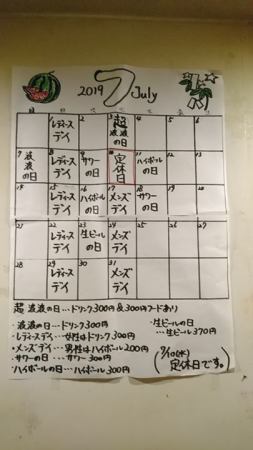 2019 7 July
日 月 火 水 木 金 土
1 レディースデイ 2 3 超 波波の日 4 5 6
7 波波の日 8 レディースデイ 9 サワーの日 10 定休日 11 ハイボールの日 12 13
14 15 レディースデイ 16 ハイボールの日 17 メンズデイ 18 サワーの日 19 20
21 22 レディースデイ 23 生ビールの日 24 メンズデイ 25 26 27
28 29 レディースデイ 30 31 メンズデイ
超 波波の日…ドリンク300円&300円フードあり
・波波の日…ドリンク300円
・レディースデイ…女性はドリンク300円
・メンズデイ…男性はハイボール200円
・サワーの日…サワー300円
・ハイボールの日…ハイボール300円
・生ビールの日
…生ビール370円
(7/10(水)
定休日です。)